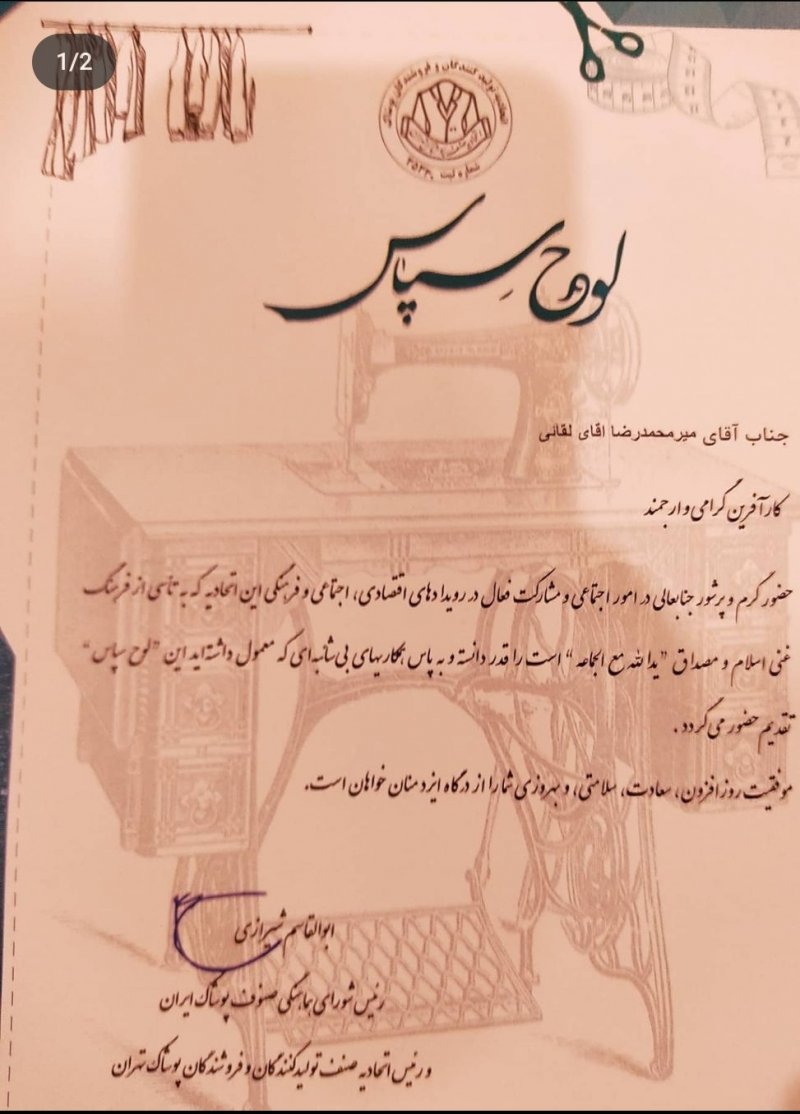 1/2
اتحادیه تولید کنندگان و فروشندگان پوشاک
شماره ثبت ۲۵۳۳۰
لوح سپاس
جناب آقای میرمحمدرضا اقای لقائی
کارآفرین گرامی و ارجمند
حضور گرم و پرشور جنابعالی در امور اجتماعی و مشارکت فعال در رویدادهای اقتصادی، اجتماعی و فرهنگی این اتحادیه که به تأسی از فرهنگ
غنی اسلام و مصداق "یدالله مع الجماعه" است را قدر دانسته و به پاس همکاریهای بی‌شائبه‌ای که معمول داشته‌اید این "لوح سپاس"
تقدیم حضور می‌گردد.
موفقیت روزافزون، سعادت، سلامتی، و بهروزی شما را از درگاه ایزد منان خواهان است.
ابوالقاسم شیرازی
رئیس شورای هماهنگی صنوف پوشاک ایران
و رئیس اتحادیه صنف تولیدکنندگان و فروشندگان پوشاک تهران